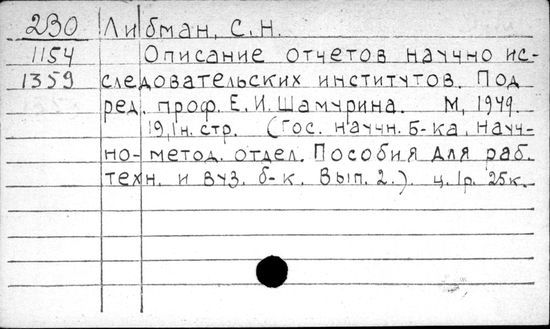 230 Либман, С.Н.
1154 Описание отчетов научно ис-
1359 следовательских институтов. Под
ред. проф. Е.И. Шамурина. М, 1949.
19, 1н. стр. (Гос. научн. б-ка. Науч-
но-метод. отдел. Пособия для раб.
техн. и вуз. б-к. Вып. 2.). ц. 1р. 25к.